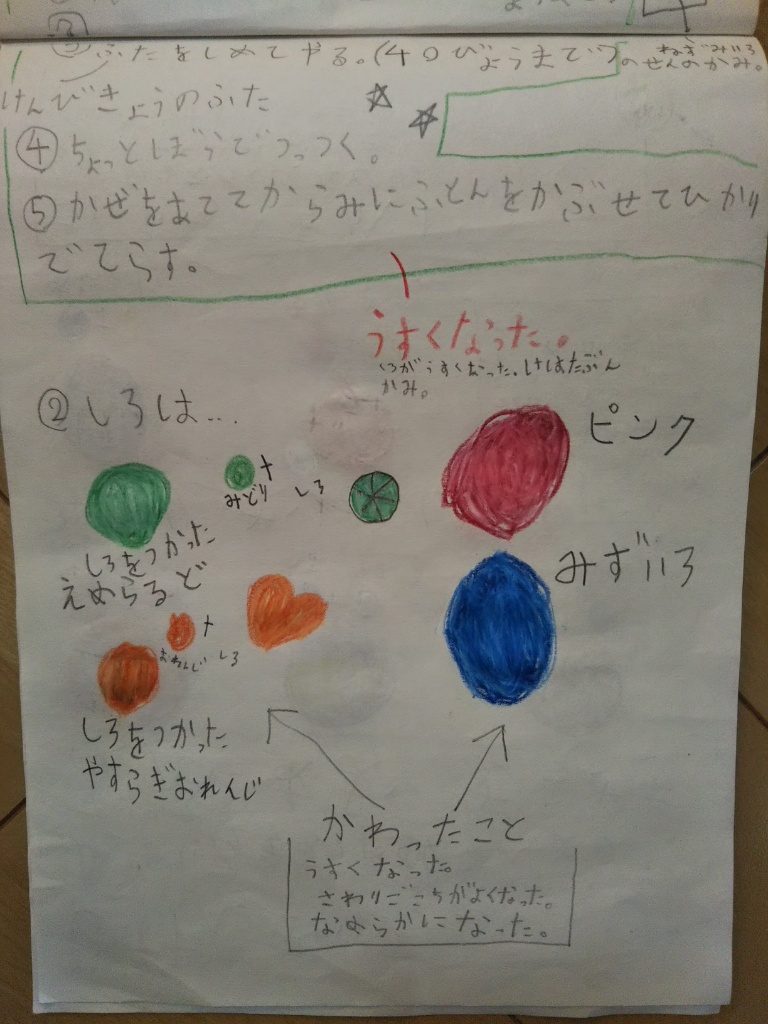 ③ ふたをしめてやる。(40びょうまで)
の せんのかみ。
けんびきょうのふた
④ ちょっとぼうでつっつく。
⑤ かぜをあててからみにふとんをかぶせてひかり
でてらす。
うすくなった。
いろがうすくなった。けはたぶん
かみ。
② しろは…
ピンク
みどり + しろ
しろをつかった
えめらるど
みずいろ
おれんじ + しろ
しろをつかった
やすらぎおれんじ
かわったこと
うすくなった。
さわりごこちがよくなった。
なめらかになった。